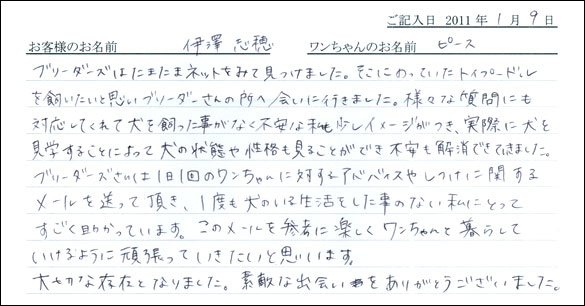 ご記入日 2011年 1月 9日
お客様のお名前 伊澤 志穂 ワンちゃんのお名前 ピース
ブリーダーズはたまたまネットをみて見つけました。そこにのっていたトイプードル
を飼いたいと思いブリーダーさんの所へ会いに行きました。様々な質問にも
対応してくれて犬を飼った事がなく不安な私も少しイメージがつき、実際に犬を
見学することによって犬の状態や性格も見ることができ不安も解消できてきました。
ブリーダーズさんは1日1回のワンちゃんに対するアドバイスやしつけに関する
メールを送って頂き、1度も犬のいる生活をした事のない私にとって
すごく助かっています。このメールを参考に楽しくワンちゃんと暮らして
いけるように頑張っていきたいと思います。
大切な存在となりました。素敵な出会いをありがとうございました。